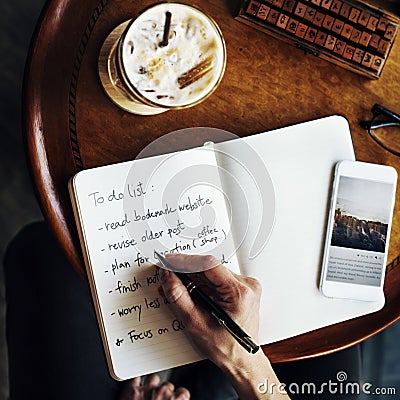 To do list :
- read bookmark website
- revise older post
- plan for location (coffee shop)
- finish
- worry less
* Focus on
dreamstime